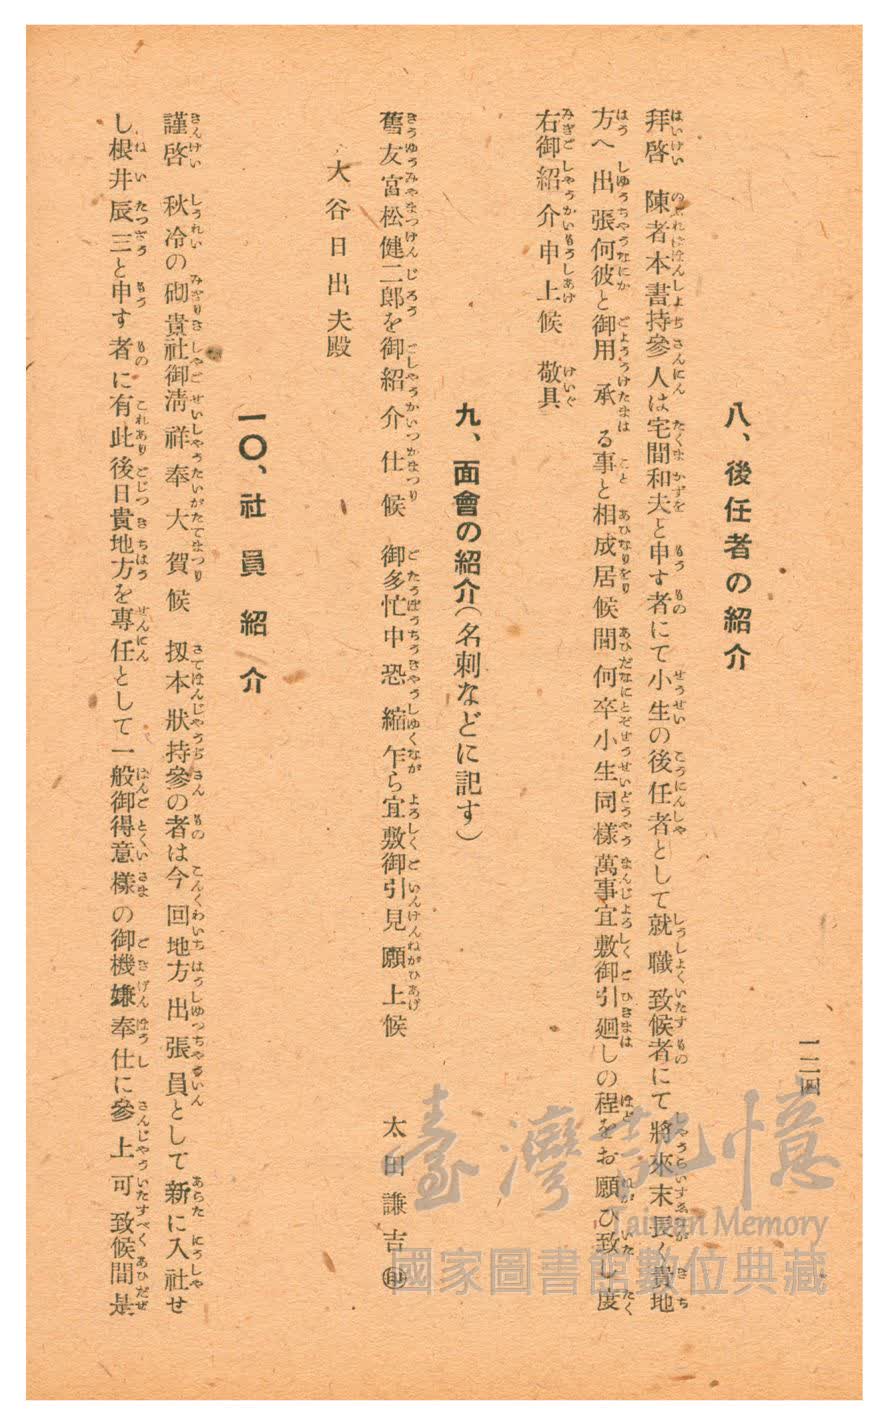 一二四
八、後任者の紹介
拜啓　陳者本書持參人は宅間和夫と申す者にて小生の後任者として就職致候者にて將來末長く貴地
方へ出張何彼と御用承る事と相成居候間何卒小生同樣萬事宜敷御引廻しの程をお願ひ致し度
右御紹介申上候　敬具
九、面會の紹介（名刺などに記す）
舊友宮松健二郎を御紹介仕候　御多忙中恐縮乍ら宜敷御引見願上候　太田謙吉㊞
大谷日出夫殿
一〇、社員紹介
謹啓　秋冷の砌貴社御淸祥奉大賀候　扨本狀持參の者は今回地方出張員として新に入社せ
し根井辰三と申す者に有此後日貴地方を專任として一般御得意樣の御機嫌奉仕に參上可致候間是
臺灣記憶
Taiwan Memory
國家圖書館數位典藏